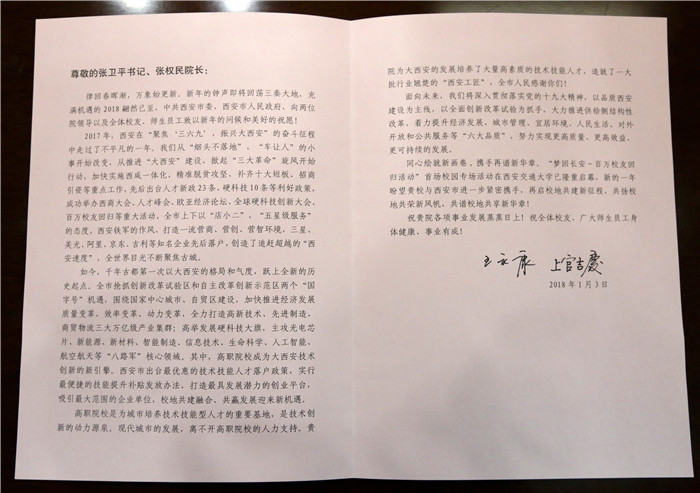 尊敬的张卫平书记、张权民院长：
律回春晖渐，万象始更新。新年的钟声即将回荡三秦大地，充
满机遇的2018翩然已至，中共西安市委、西安市人民政府，向两位
院领导以及全体校友、师生员工致以新年的问候和美好的祝愿！
2017年，西安在“聚焦‘三六九’，振兴大西安”的奋斗征程
中走过了不平凡的一年。我们从“烟头不落地”、“车让人”的小
事开始改变，从推进“大西安”建设、掀起“三大革命”旋风开始
行动，加快实施西咸一体化，精准脱贫攻坚、补齐十大短板、招商
引资等重点工作，先后出台人才新政23条、硬科技10条等利好政策，
成功举办西商大会、人才峰会、欧亚经济论坛、全球硬科技创新大会、
百万校友回归等重大活动，全市上下以“店小二”、“五星级服务”
的态度，西安铁军的作风，打造一流营商、营创、营智环境，三星、
美光、阿里、京东、吉利等知名企业先后落户，创造了追赶超越的“西
安速度”，全世界目光不断聚焦古城。
如今，千年古都第一次以大西安的格局和气度，跃上全新的历
史起点。全市抢抓创新改革试验区和自主改革创新示范区两个“国
字号”机遇，围绕国家中心城市、自贸区建设，加快推进经济发展
质量变革、效率变革、动力变革，全力打造高新技术、先进制造、
商贸物流三大万亿级产业集群；高举发展硬科技大旗，主攻光电芯
片、新能源、新材料、智能制造、信息技术、生命科学、人工智能、
航空航天等“八路军”核心领域。其中，高职院校成为大西安技术
创新的新引擎。西安市出台最优惠的技术技能人才落户政策，实行
最便捷的技能提升补贴发放办法，打造最具发展潜力的创业平台，
吸引最大范围的企业单位，校地共建融合、共赢发展迎来新机遇。
高职院校是为城市培养技术技能型人才的重要基地，是技术创
新的动力源泉。现代城市的发展，离不开高职院校的人力支持。贵
院为大西安的发展培养了大量高素质的技术技能人才，造就了一大
批行业翘楚的“西安工匠”，全市人民感谢你们！
面向未来，我们将深入贯彻落实党的十九大精神，以品质西安
建设为主线，以全面创新改革试验为抓手，大力推进供给侧结构性
改革，着力提升经济发展、城市管理、宜居环境、人民生活、对外
开放和公共服务等“六大品质”，努力实现更高质量、更高效益、
更可持续的发展。
同心绘就新画卷，携手再谱新华章！“梦回长安－百万校友回
归活动”首场校园专场活动在西安交通大学已隆重启幕。新的一年
盼望贵校与西安市进一步紧密携手，再启校地共建新征程，共扬校
地共荣新风帆，共谱校地共享新华章！
祝贵院各项事业发展蒸蒸日上！祝全体校友、广大师生员工身
体健康、事业有成！
王永康 上官吉庆
2018年1月3日